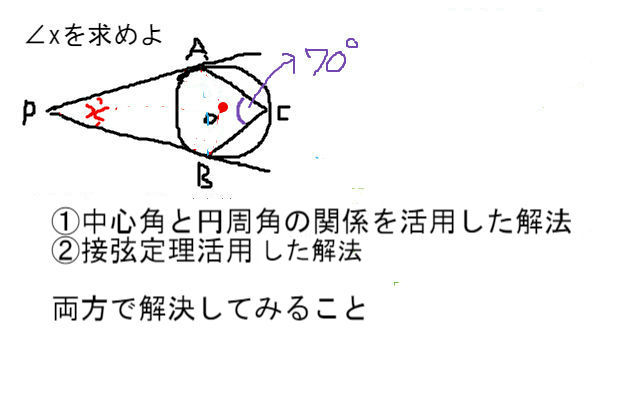 ∠xを求めよ
A
70°
P
x
o
C
B
①中心角と円周角の関係を活用した解法
②接弦定理活用 した解法
両方で解決してみること